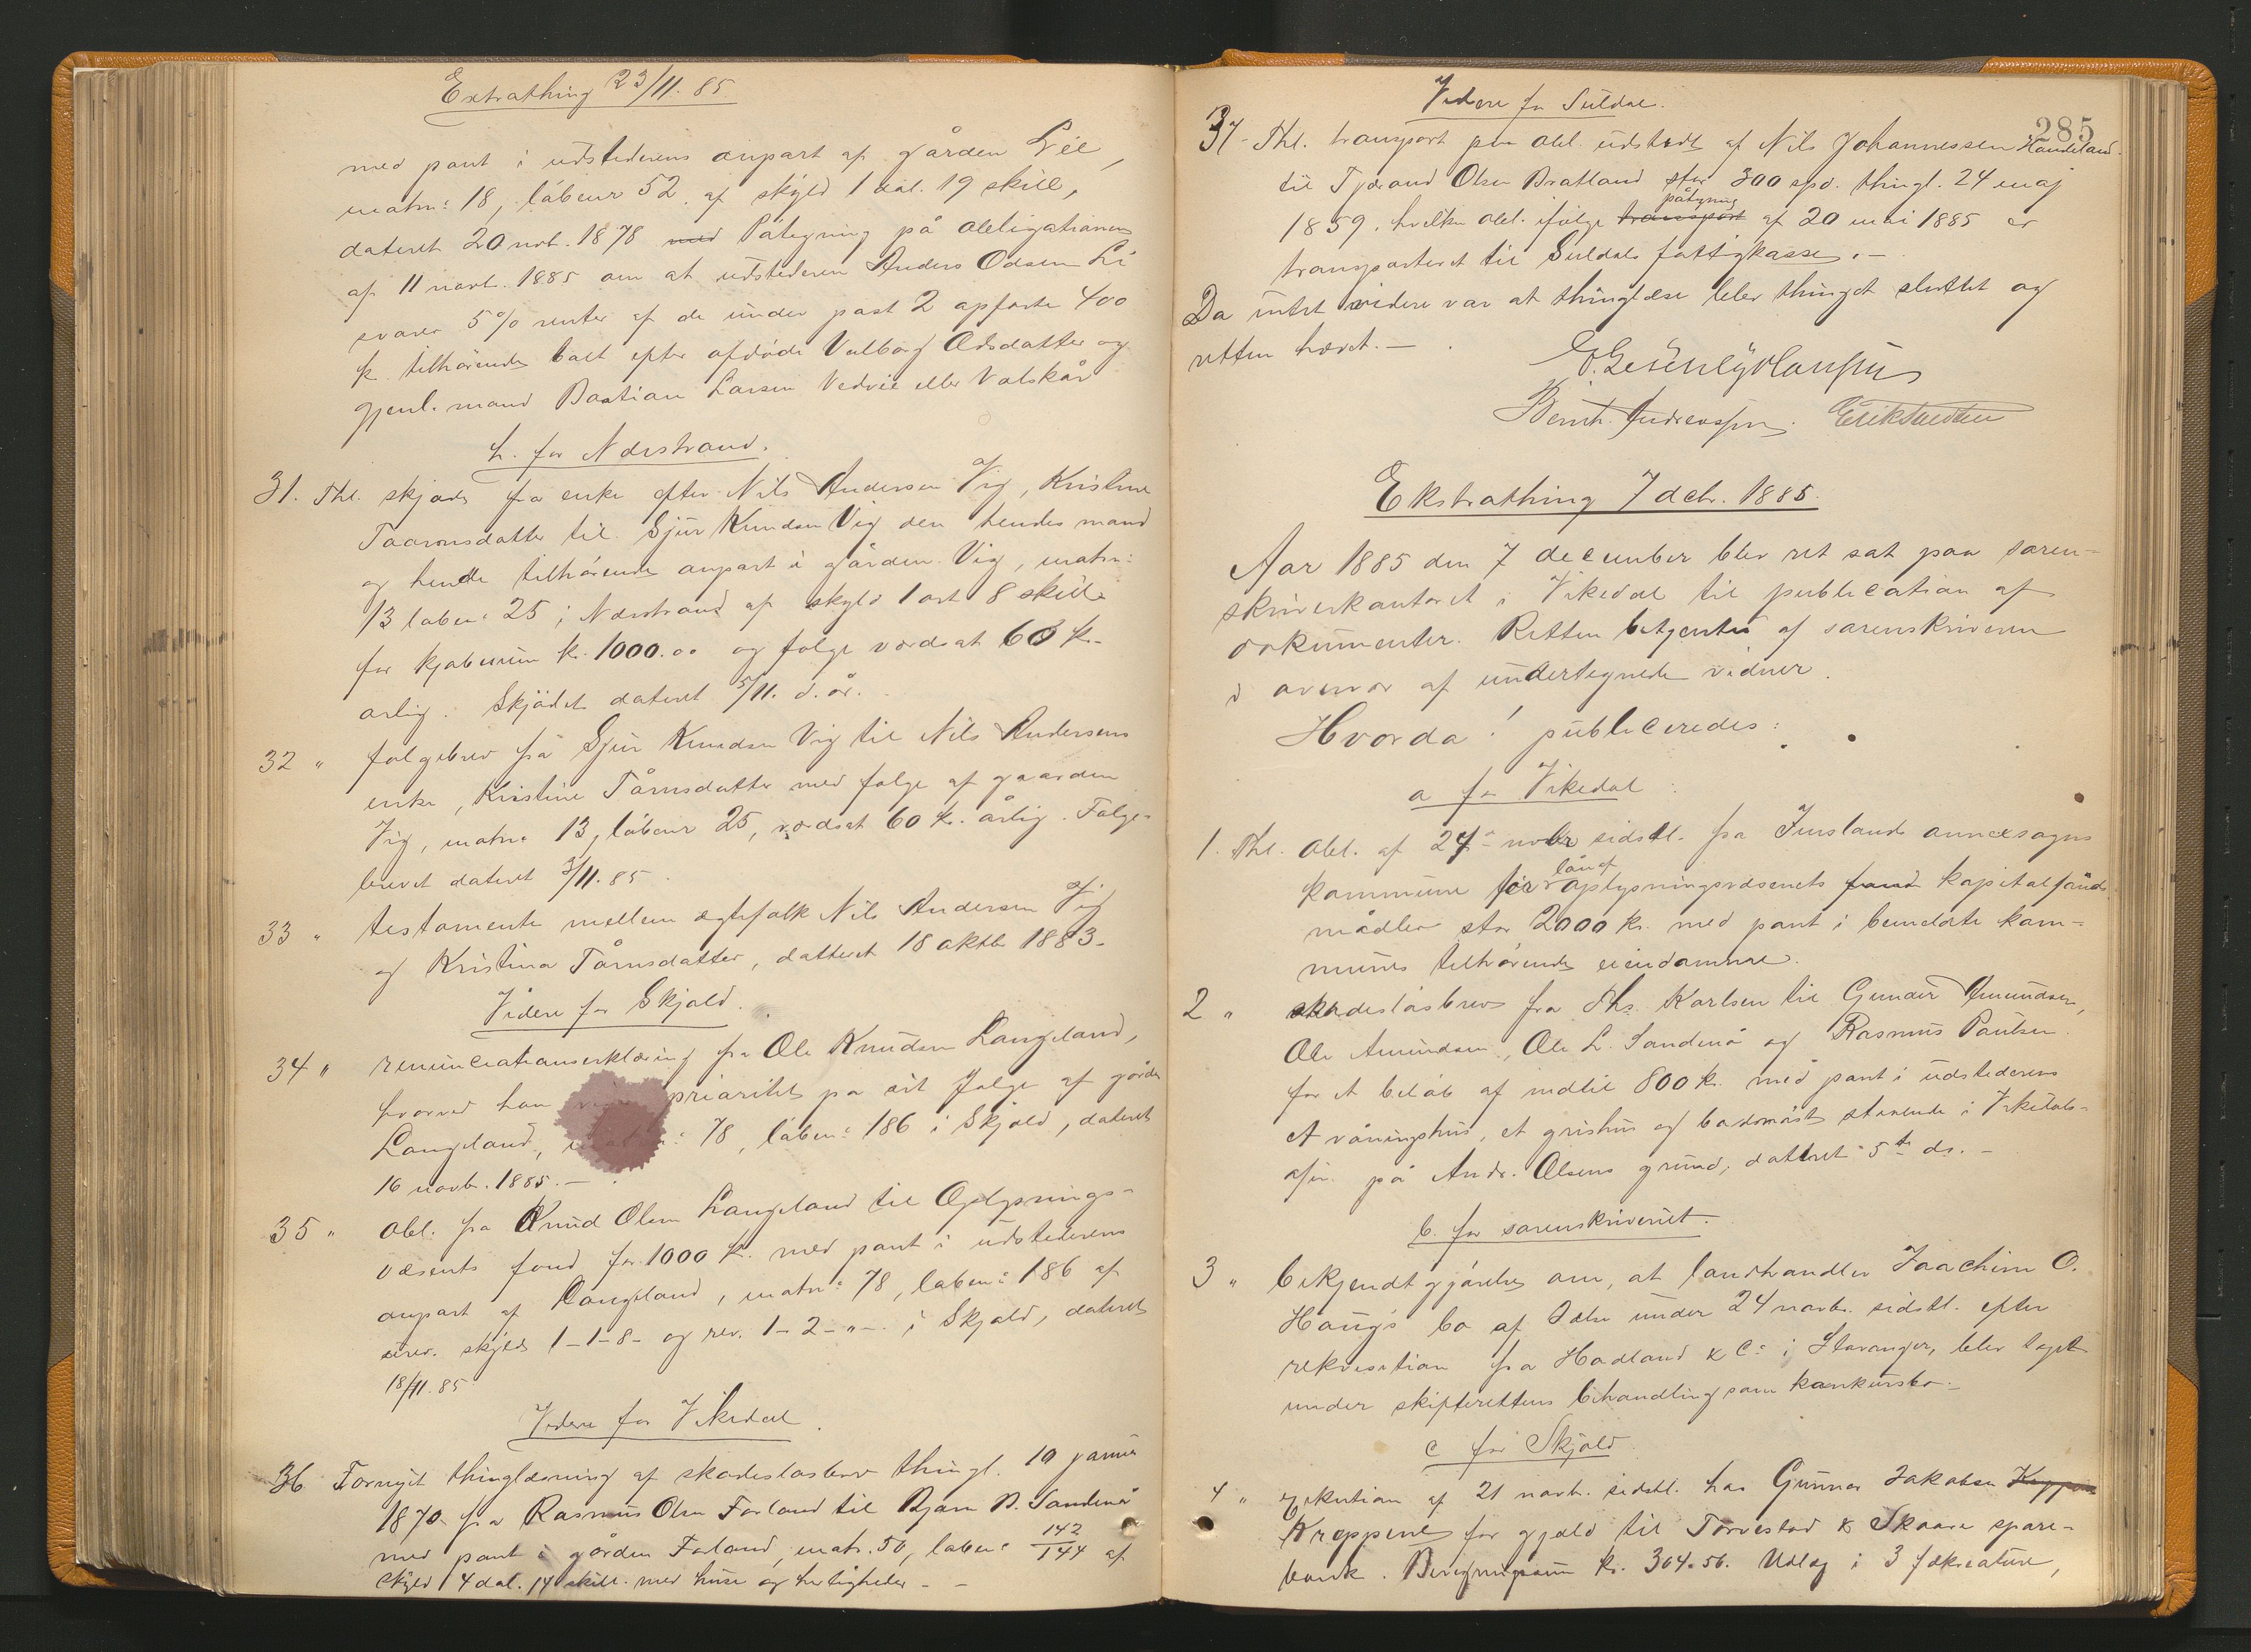 Extrathing 23/11. 85
med pant i udstederens anpart af gården Lie,
matrn: 18, løbenr 52 af skyld 1 dal. 19 skill,
dateret 20 novb. 1878 med Påtegning på obligationen
af 11 novb. 1885 om at udstederen Anders Odsen Li
svarer 5% renter af de under post 2 opførte 400
k. tilhørende boet efter afdøde Valborg Odsdatter og
gjenl. mand Bastian Larsen Vedvie eller Valskår
h. for Nærstrand.
31. Thl. skjøde fra enke efter Nils Andersen Vig, Kristine
Taaronsdatter til Sjur Knudsen Vig den hendes mand
og hende tilhørende anpart i gården Vig, matrn:
13 løben: 25 i Nærstrand af skyld 1 ort 8 skill.
for kjøbesum k. 1000.00 og følge værdsat 60 k.
årlig. Skjødet dateret 5/11. d. år.
32 " følgebrev frå Sjur Knudsen Vig til Nils Andersens
enke, Kristine Tårnsdatter med følge af gaarden
Vig, matrn: 13, løbenr 25, værdsat 60 k. årlig. Følge-
brevet dateret 5/11. 85.
33 " testamente mellem ægtefolk Nils Andersen Vig
og Kristina Tårnsdatter, datteret 18 oktb 1883.
Videre for Skjold.
34 " renunciationserklæring fra Ole Knudsen Langeland,
hvorved han prioritet på sit følge af gården
Langeland, : 78, løben: 186 i Skjold, dateret
16 novb. 1885. —
35 " Obl. fra Knud Olsen Langeland til Oplysnings-
væsenets fond for 1000 k. med pant i udstederens
anpart af Langeland, matrn: 78, løben: 186 af
urev. skyld 1-1-8- og rev. 1-2-"-. i Skjold, dateret
18/11. 85
Videre for Vikedal.
36 Fornyet thinglæsning af skadesløsbrev thingl. 19 januar
1870 fra Rasmus Olsen Førland til Bjørn B. Sandenå
med pant i gården Førland, matr. 50, løben: 142/144 af
skyld 4 dal. 14 skill. med huse og herligheder - -
285
Videre for Suldal.
37- Thl. transport paa obl. udstedt af Nils Johannessen Handeland
til Tjærand Olsen Bratland stor 300 spd. thingl. 24 maj
påtegning
1859, hvilken obl. ifølge transport af 20 mai 1885 er
transporteret til Suldals fattigkasse. -
Da intet videre var at thinglæse blev thinget sluttet og
retten hævet. -
Bernh. Andreassen. Erik
Ekstrathing 7 decb. 1885.
Aar 1885 den 7 december blev ret sat paa soren-
skriverkontoret i Vikedal til publication af
dokumenter. Retten betjentes af sorenskriveren
i overvær af undertegnede vidner.
Hvorda publiceredes:
a for Vikedal:
1. Thl. Obl. af 24- novbr sidstl. fra Imslands annexsogns
lån af
kommune for oplysningsvæsenets fond kapitalfonds
midler stor 2000 k. med pant i bemeldte kom-
munes tilhørende eiendomme.
2 " skadesløsbrev fra Ths. Karlsen til Gunder Amundsen,
Ole Amundsen, Ole L. Sandenå og Rasmus Paulsen
for et beløb af indtil 800 k. med pant i udstederens
et våningshus, et grishus og stående i Vikedals-
øren på Andr. Olsens grund, datteret 5te ds. -
b. for sorenskriveriet.
3 " bekjendtgjørelse om, at landhandler Joachim O.
Haugs bo af Ølen under 24 novbr. sidstl. efter
rekvisition fra Hadland & Co i Stavanger, blev taget
under skifterettens behandling som konkursbo. -
c for Skjold
4 " Exekution af 21 novb. sidstl. hos Gunnar Jakobsen
Kroppene for gjæld til Torvestad & Skaare spare-
bank. Beregningssum k. 304.56. Udlæg i 3 fækreature,